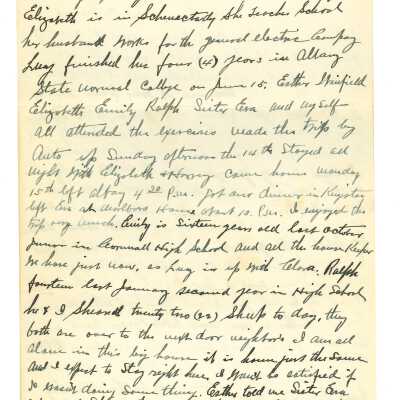 Elizabeth is in Schenectady She Teaches School
her husband works for the general electric Company
Lucy finished her four (4) years in Albany
State normal College on June 15. Esther Winifield
Elizabeth Emily Ralph Sister Eva and myself
All attended the exercises made the trip by
Auto up Sunday afternoon the 14th Stayed all
night with Elizabeth & Harry Came home monday
15th left Albany 4 30 P.m. got our dinner in Kingston
left Eva at home about 10 P.m. I enjoyed the
trip very much. Emily is Sixteen years old last October
Junior in Cornwall High School and all the house Keeper
We have just now, as Lucy is up with Clara. Ralph
fourteen last January second year in High School
he & I Sheared twenty two (22) Sheep to day, they
both are over to the next door neighbors I am all
alone in this big house it is home just the Same
And I expect to Stay right here, I wont be satisfied if
I wasn't doing Something. Esther told me Sister Eva